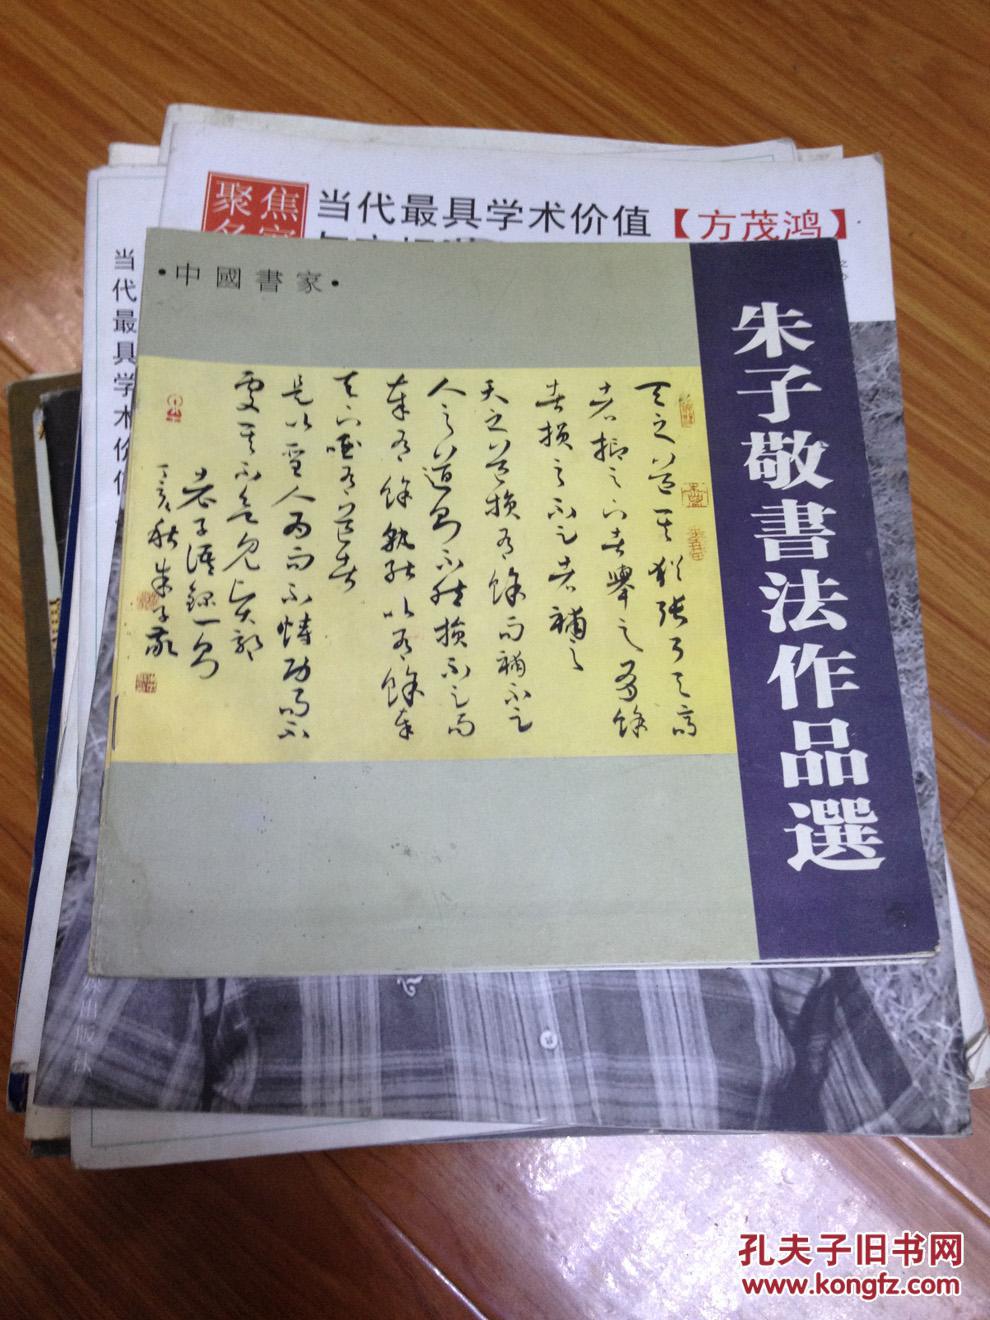 聚焦
当代最具学术价值
【方茂鸿】
当代最具学术价
•中國書家•
朱子敬書法作品選
天之道其猶張弓乎高
者抑之下者舉之有餘
者損之不足者補之
天之道損有餘而補不足
人之道則不然損不足而
奉有餘孰能以有餘奉
天下唯有道者
是以聖人為而不恃功成不
處其不欲見賢邪
老子語錄一則
丁亥秋朱子敬
孔夫子旧书网
www.kongfz.com